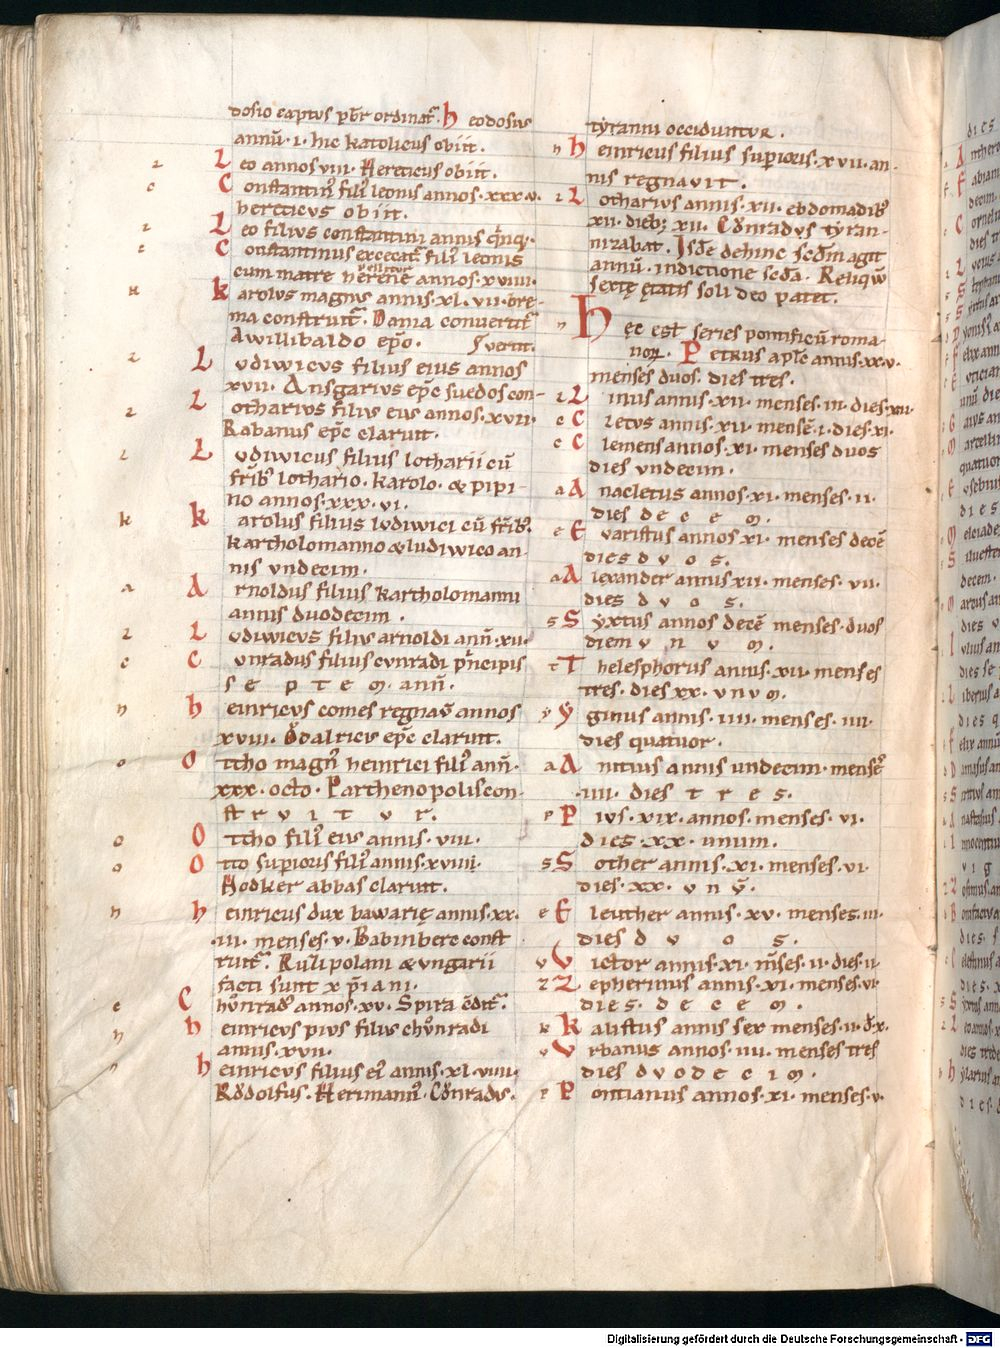 dosio captus p̄br ordinat᷑. heodosius
annū·i· hic katolicus obiit.
Leo annos viii· Hereticus obiit.
Constantin᾽ fili᾽ leonis annos·xxx·v·
hereticus obiit.
Leo filius constantini annis q̄nq̨·
Constantinus excecat᷑ fili᾽ leonis
cum matre herene annos·xviiii·
karolus magnus annis·xl·vii·bre-
ma construit᷑. Dania convertit᷑
A willibaldo ep̄o. vertit.
Ludiwicus filius eius annos
xvii· Ansgarius ep̄c suedos con-
Lotharius filius eius annos·xvii·
Rabanus ep̄c claruit.
Ludiwicus filius lotharii cū
fr̄ib᾽ lothario. karolo. & pipi-
no annos·xxx·vi.
karolus filius ludiwici cū fr̄ib᾽.
kartholomanno & ludiwico an-
nis undecim.
Arnoldus filius kartholomanni
annis duodecim.
Ludiwicus filius arnoldi ann̄·xii·
Cunradus filius cunradi p̄ncipis
septem· ann̄.
heinricus comes regnav̄ annos
xviii· Ǒdalricus ep̄c claruit.
Ottho magn᾽ heinrici fili᾽ ann̄·
xxx·octo· Parthenopolis con-
struitur.
Ottho fili᾽ eius annis·viii·
Otto sup̄ioris fili᾽ annis·xviiii·
Nodker abbas claruit.
heinricus dux bawarię annis·xx·
·iii· menses·v· Babinberc const
ruit᷑. Ruli polani & ungarii
facti sunt xp̄iani.
Chǒnrad᾽ annos·xv· Spira c̄dit᷑.
heinricus pius filius chǒnradi
annis·xvii·
heinricus filius ei᾽ annis·xl·viiii·
Rǒdolfus. Herimann᾽. Cǒnradus.
tẏranni occiduntur.
heinricus filius sup̄ioris·xvii·an-
nis regnavit.
Lotharius annis·xii· ebdomadib᾽
xii· dieb; xii· Cǒnradus tẏran-
nizabat. Isdē dehinc sc̄dm agit
annū· indictione sc̄da. Reliquū
sextę ętatis soli deo patet.
Hęc est series pontificū roma-
noꝝ. Petrus ap̄lc annis·xx·v·
menses duos· dies tres.
Linus annis·xii· menses·iii· dies·xii·
Cletus annis·xii· mensē·i· dies·xi·
Clemens annos·xi· menses duos
dies undecim.
Anacletus annos·xi· menses·ii·
dies decem.
Evaristus annos xi· menses decē
dies duos.
Alexander annis xii· menses·vii·
dies duos.
Sẏxtus annos decē menses·duos
diem unum.
Thelesphorus annis·xii· menses
tres. dies xx· unum.
ẏginus annis·iiii· menses·iii·
dies quatuor.
Anitius annis undecim· mense᾽
·iiii· dies tres.
Pius·xix· annos· menses·vi·
dies·xx· unum.
Sother annis·xi· menses·vi·
dies·xx· unū.
Eleuther annis·xv· menses·iii·
dies duos.
Victor annis·xi· m̄ses·ii· dies·ii·
Zepherinus annis·xi· menses·vi·
dies·decem.
Kalistus annis sex menses·ii· d̄·x·
Urbanus annos·iiii· menses tres
dies duodecim.
Pontianus annos·xi· menses·v·
Digitalisierung gefördert durch die Deutsche Forschungsgemeinschaft - DFG